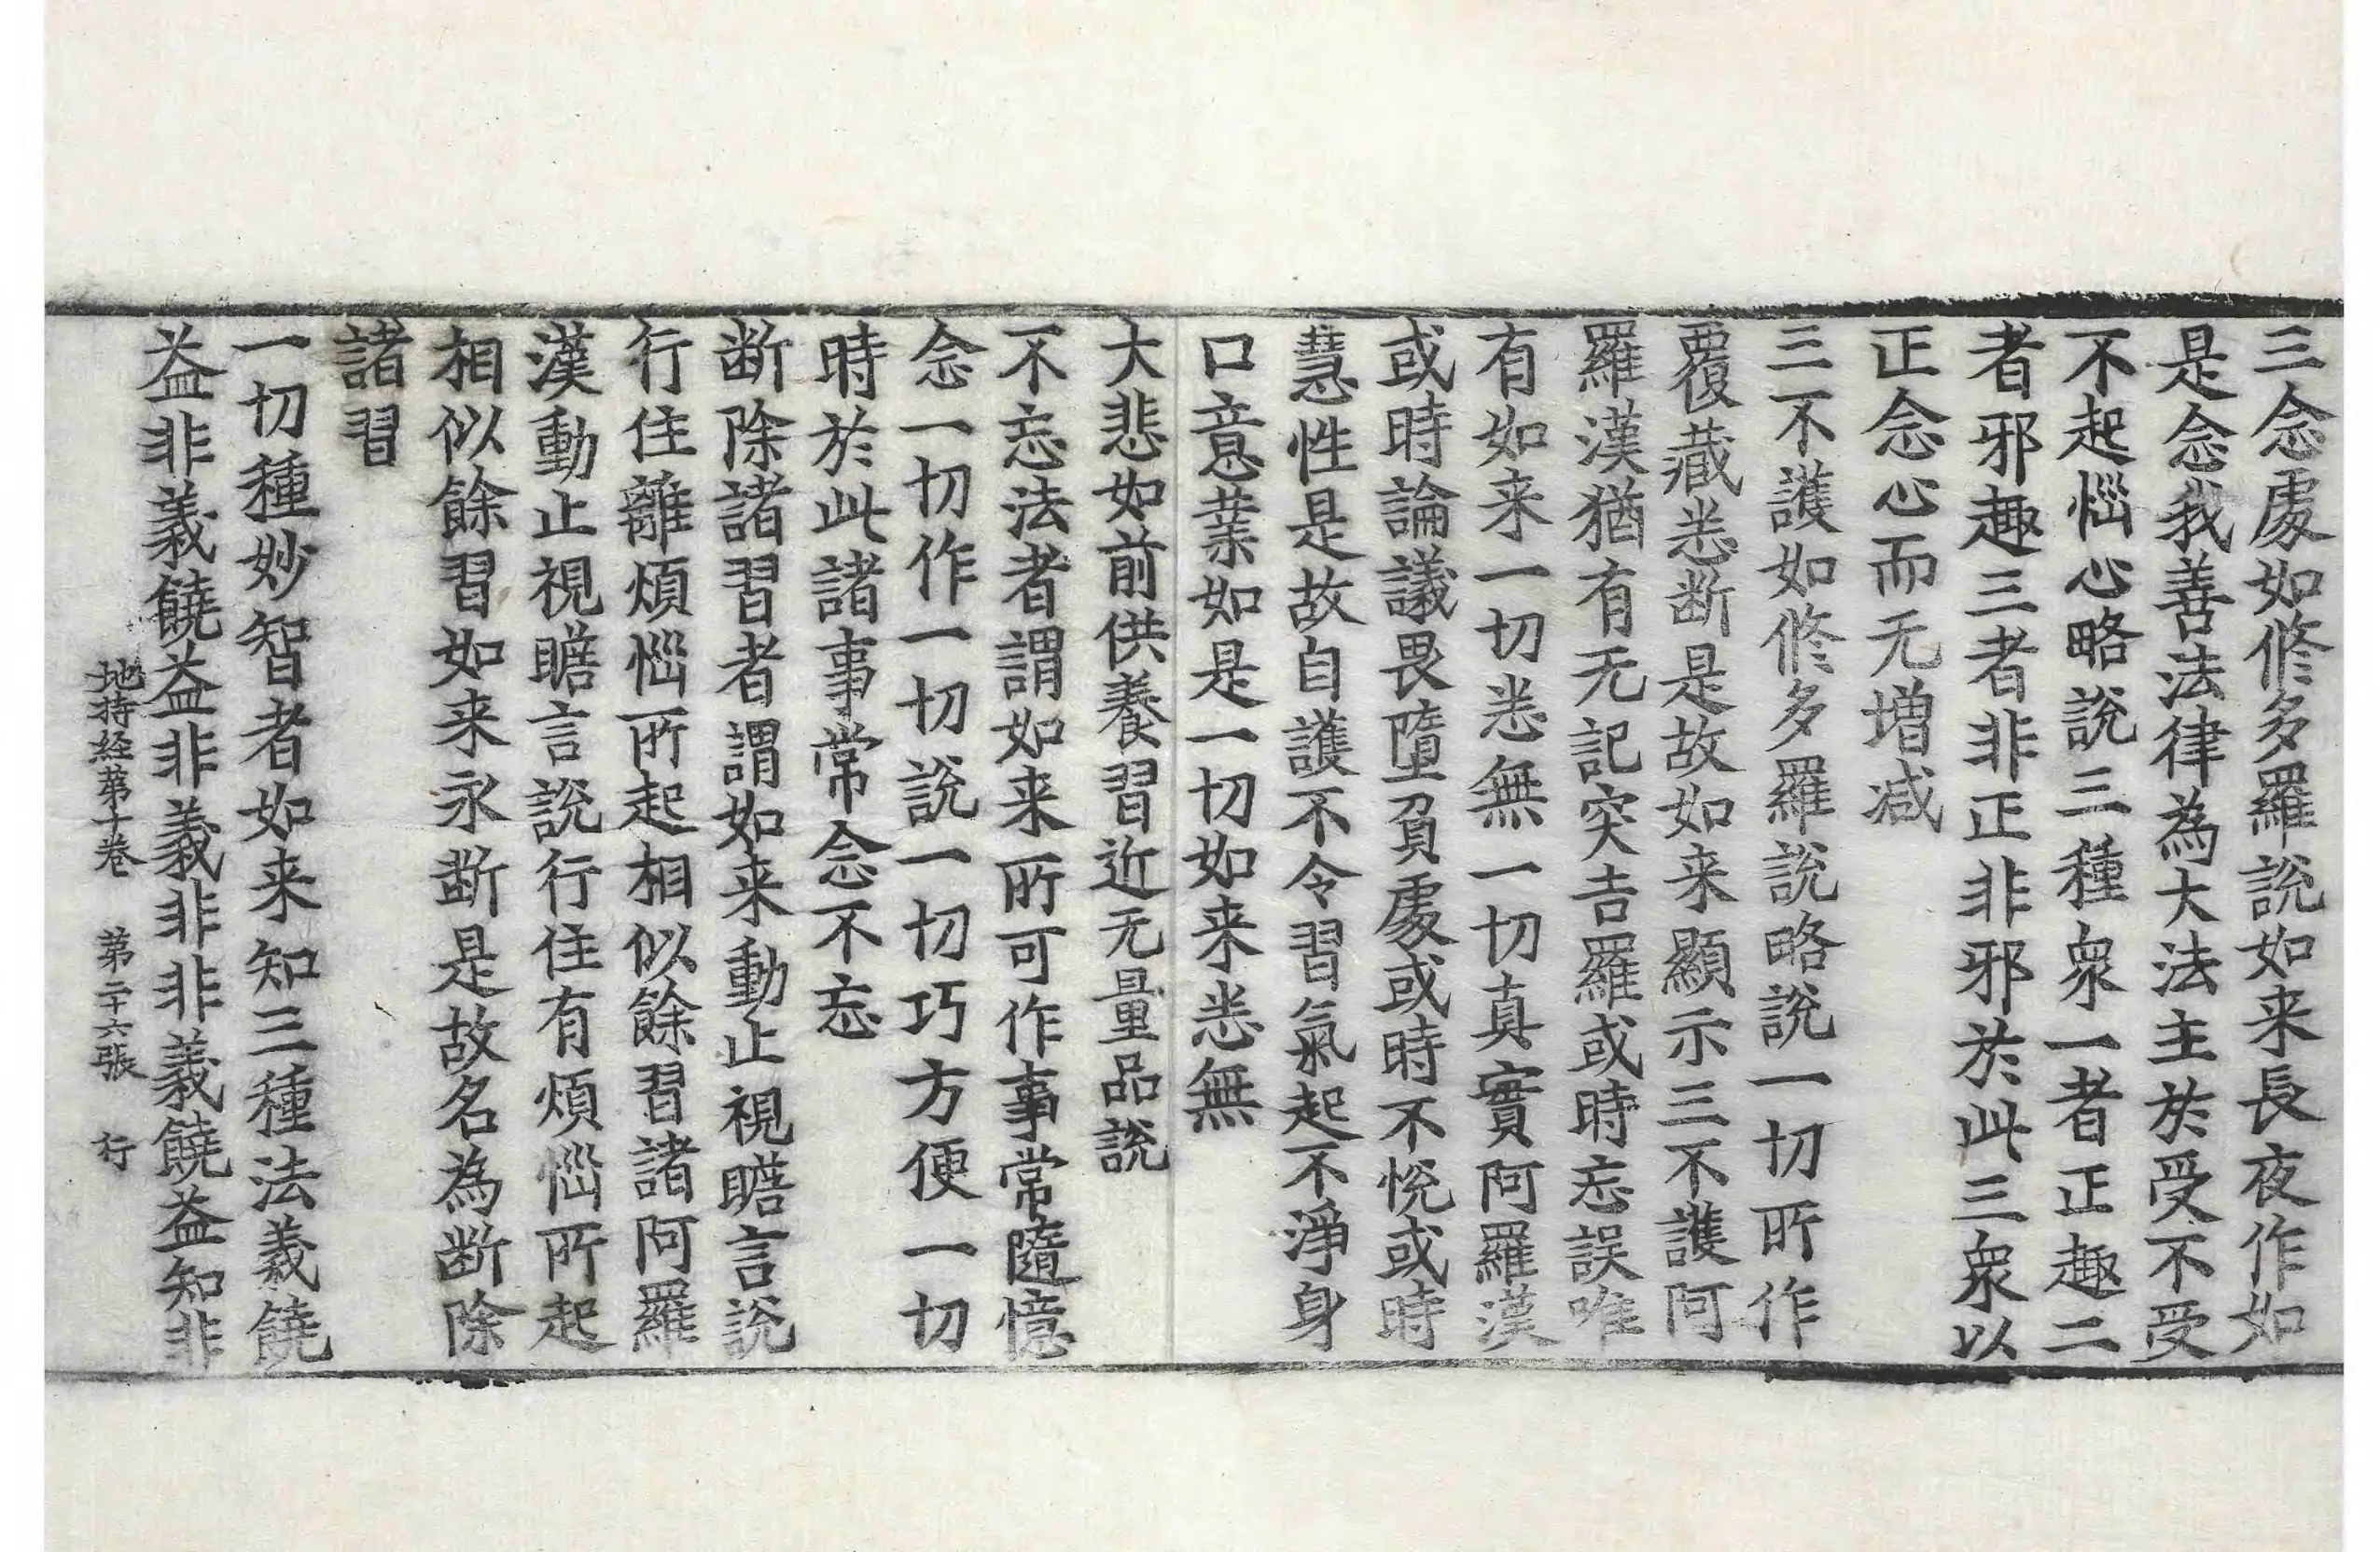 三念處如修多羅說如来長夜作如
是念我善法律為大法主於受不受
不起惱心略說三種衆一者正趣二
者邪趣三者非正非邪於此三衆以
正念心而无增減
三不護如修多羅說略說一切所作
覆藏悉断是故如来顯示三不護阿
羅漢猶有无記突吉羅或時忘誤唯
有如来一切悉無一切真實阿羅漢
或時論議畏墮負處或時不悅或時
慧性是故自護不令習氣起不淨身
口意業如是一切如来悉無
大悲如前供養習近无量品說
不忘法者謂如来所可作事常隨憶
念一切作一切說一切巧方便一切
時於此諸事常念不忘
断除諸習者謂如来動止視瞻言說
行住離煩惱所起相似餘習諸阿羅
漢動止視瞻言說行住有煩惱所起
相似餘習如来永断是故名為断除
諸習
一切種妙智者如来知三種法義饒
益非義饒益非義非非義饒益知非
地持経苐十卷　苐二十六張　行